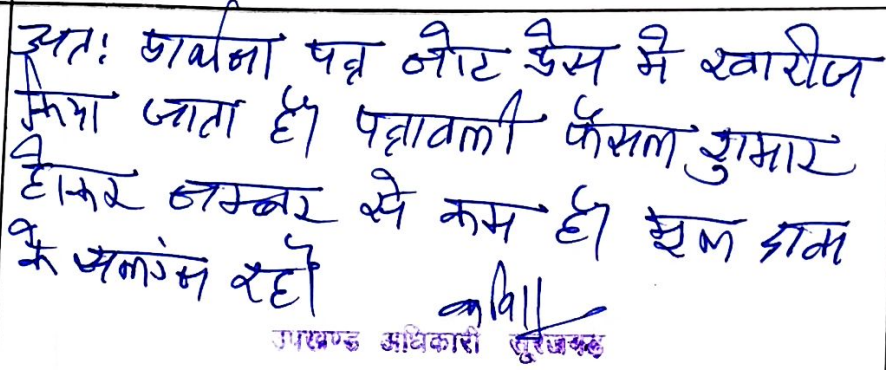 अतः प्रार्थना पत्र नोट प्रेस मे खारीज
किया जाता है। पत्रावली फैसल शुमार
होकर नम्बर से कम हो। मूल
के संलग्न रहे।
उपखण्ड अधिकारी सूरजगढ